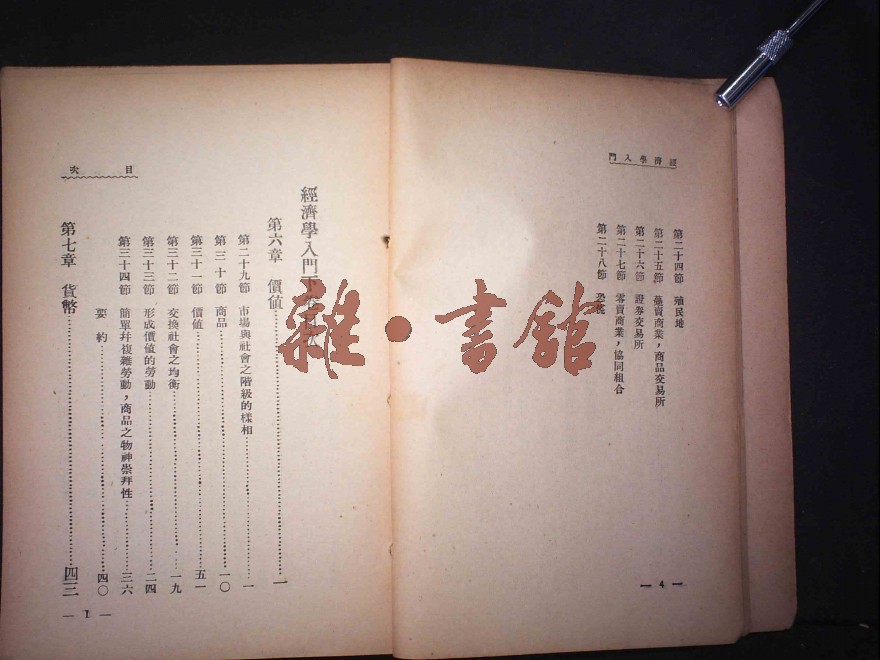 經濟學入門
第二十四節 殖民地
第二十五節 躉賣商業，商品交易所
第二十六節 證券交易所
第二十七節 零賣商業，協同組合
第二十八節 恐慌
— 4 —
經濟學入門下
第六章 價値 一
第二十九節 市場與社會之階級的樣相 一
第三十節 商品 一〇
第三十一節 價値 五一
第三十二節 交換社會之均衡 一九
第三十三節 形成價値的勞動 二四
第三十四節 簡單幷複雜勞動，商品之物神崇拜性 三六
要約 四〇
第七章 貨幣 四三
目次
— 1 —
雜·書館